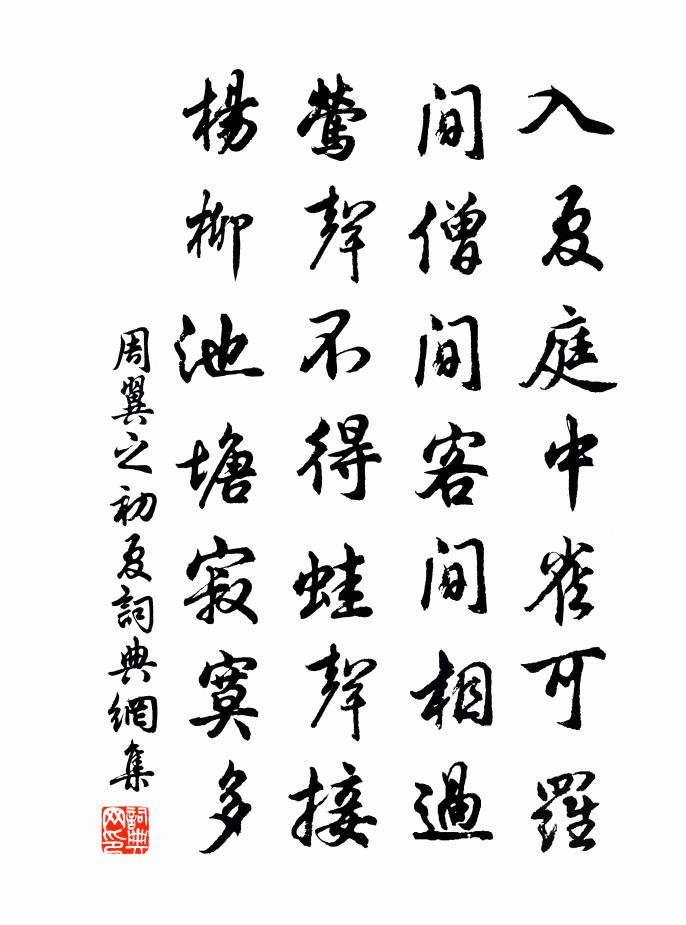 入夏庭中雀可羅
間僧間客間相過
鶯聲不得蛙聲接
楊柳池塘寂寞多
周翼之初夏詞典網集
詞典網印